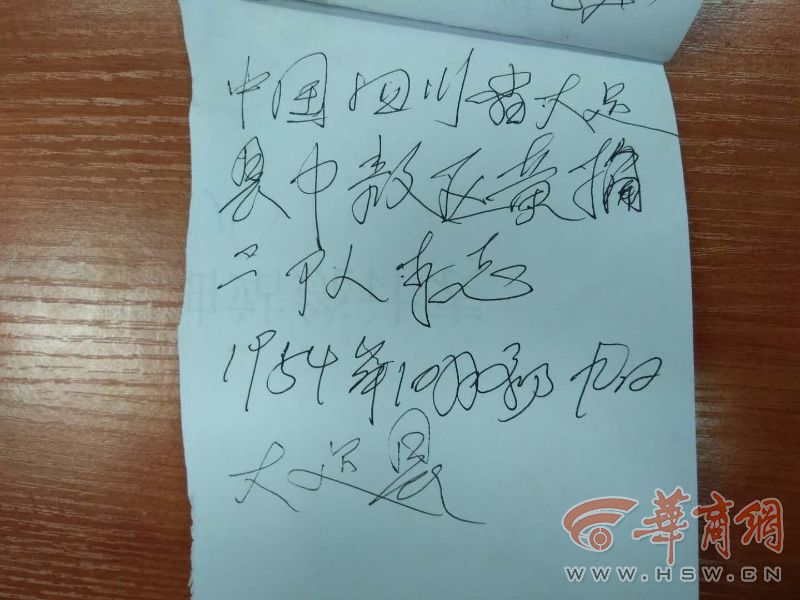 中国四川省大足
县中敖区黄桷
二队 志
1954年10月
大足县
華商網
WWW.HSW.CN